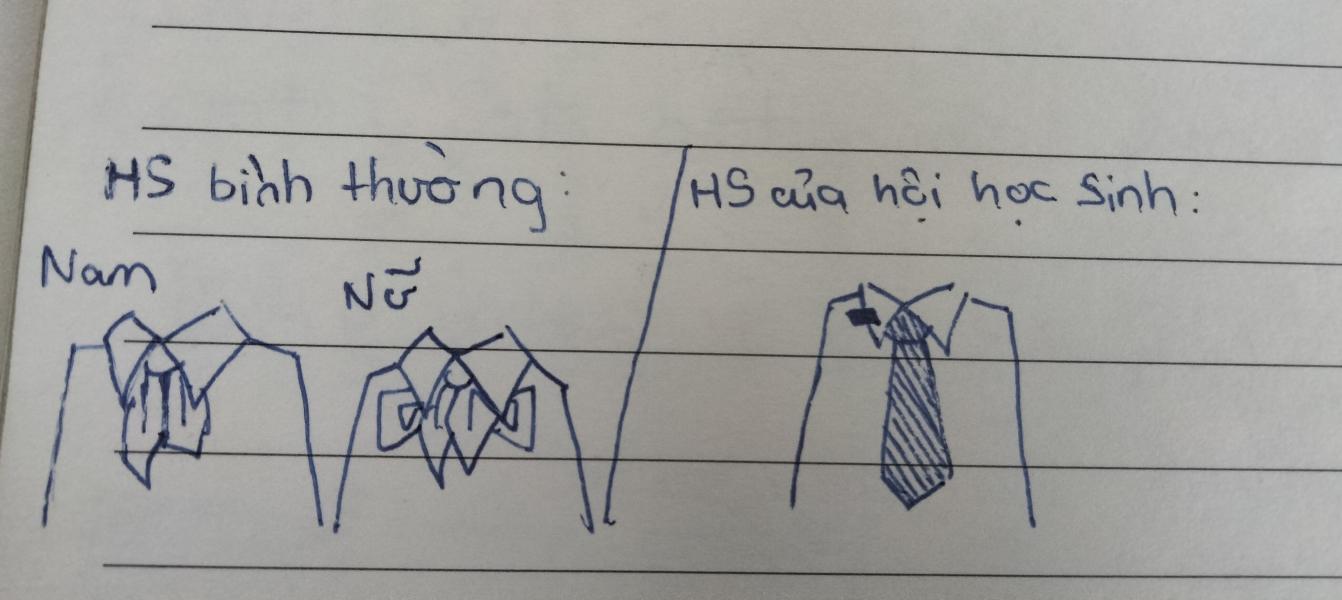 HS bình thường:
HS của hội học sinh:
Nam
Nữ